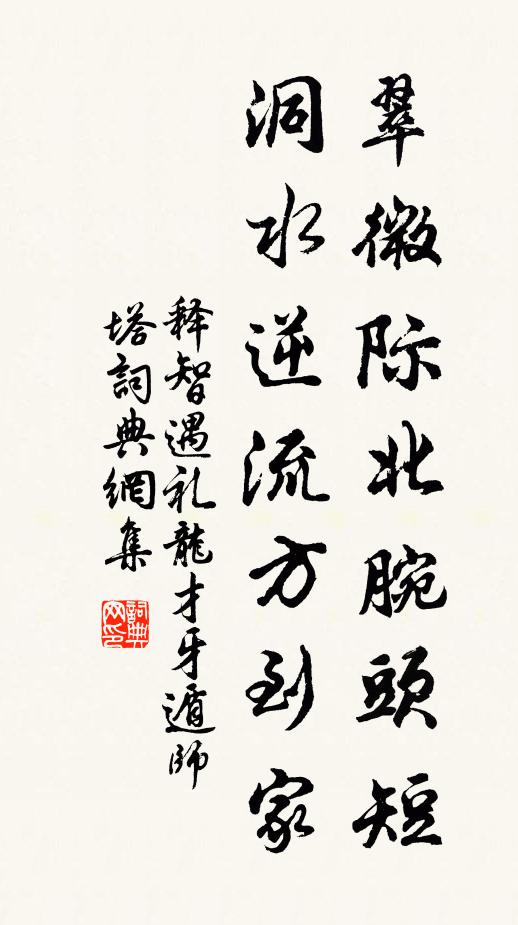 翠微际北腕頭短
洞水逆流方到家
释智遇礼龍才牙遁師
塔詞典網集
詞典網印